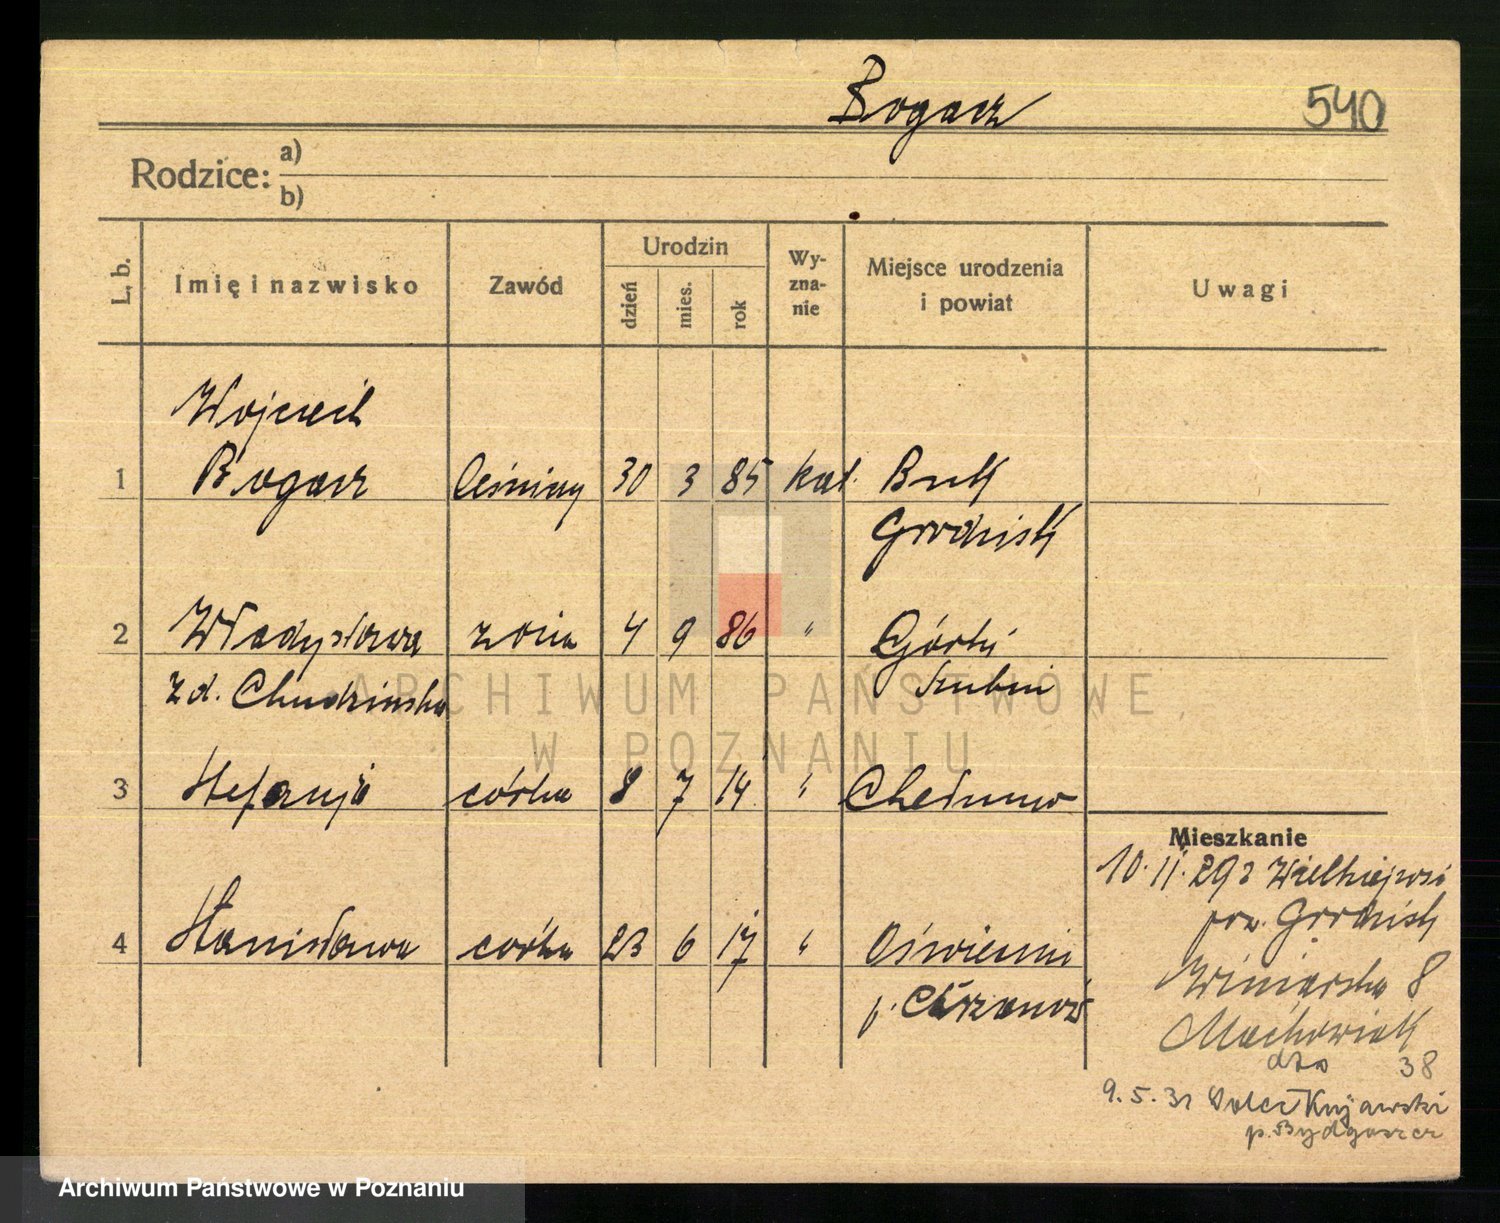 Bogacz 540
Rodzice: a)
b)
L. b. Imię i nazwisko Zawód Urodzin dzień mies. rok Wy-zna-nie Miejsce urodzenia i powiat Uwagi
Wojciech
1 Bogacz leśniczy 30 3 85 kat. Buk
Grodzisk
2 Władysława żona 4 9 86 " Górki
zd. Chudzińska Szubin
3 Stefanja córka 8 7 14 "
4 Stanisława córka 23 6 17 " Oświęcim
p. Chrzanów
Mieszkanie
10.II.29 z Wielkiejwsi
pow. Grodzisk
Winiarska 8
Maćkowiak
dto 38
9.5.31 Solec Kujawski
p. Bydgoszcz
ARCHIWUM PAŃSTWOWE
W POZNANIU
Archiwum Państwowe w Poznaniu